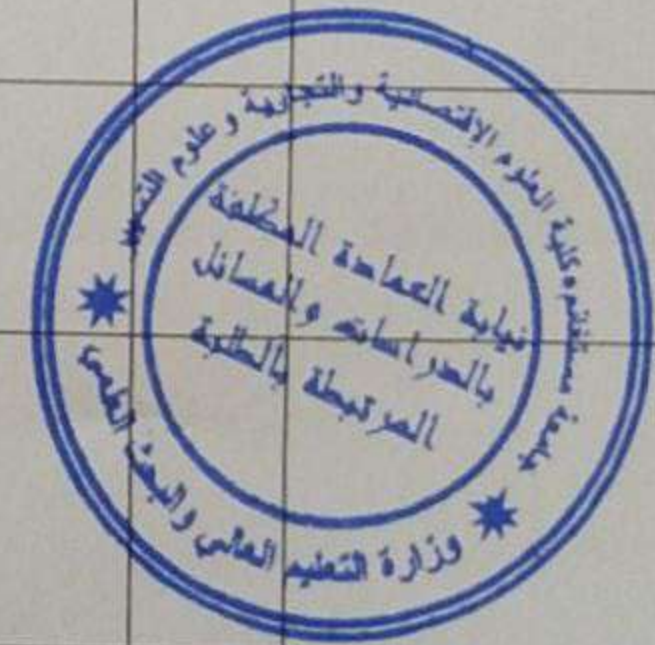 جامعة مستغانم، كلية العلوم الإقتصادية والتجارية و علوم التسيير
نيابة العمادة المكلفة
بالدراسات والمسائل
المرتبطة بالطلبة
وزارة التعليم العالي والبحث العلمي